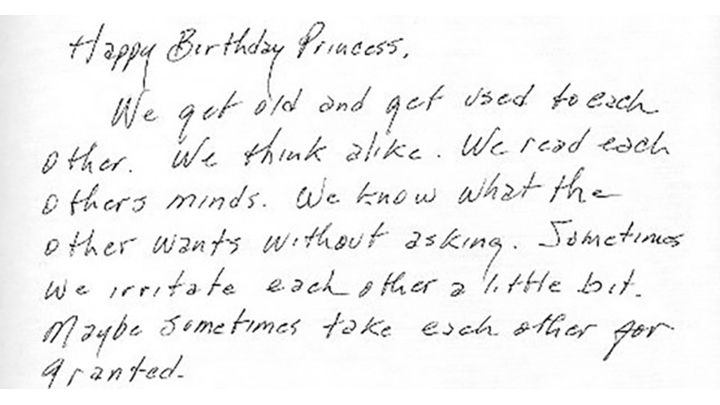 Happy Birthday Princess,
We get old and get used to each
other. We think alike. We read each
others minds. We know what the
other wants without asking. Sometimes
we irritate each other a little bit.
Maybe sometimes take each other for
granted.